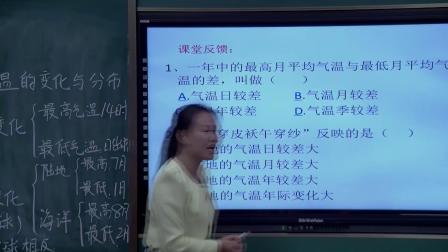 温的变化与分布
变化
最高气温14时
最低气温日出
陆地
最高7月
最低1月
海洋
最高8月
最低2月
球相反
课堂反馈：
1、一年中的最高月平均气温与最低月平均气
温的差，叫做（ ）
A.气温日较差 B.气温月较差
年较差 D.气温季较差
穿皮袄午穿纱”反映的是（ ）
地的气温日较差大
地的气温月较差大
地的气温年较差大
地的气温年际变化大